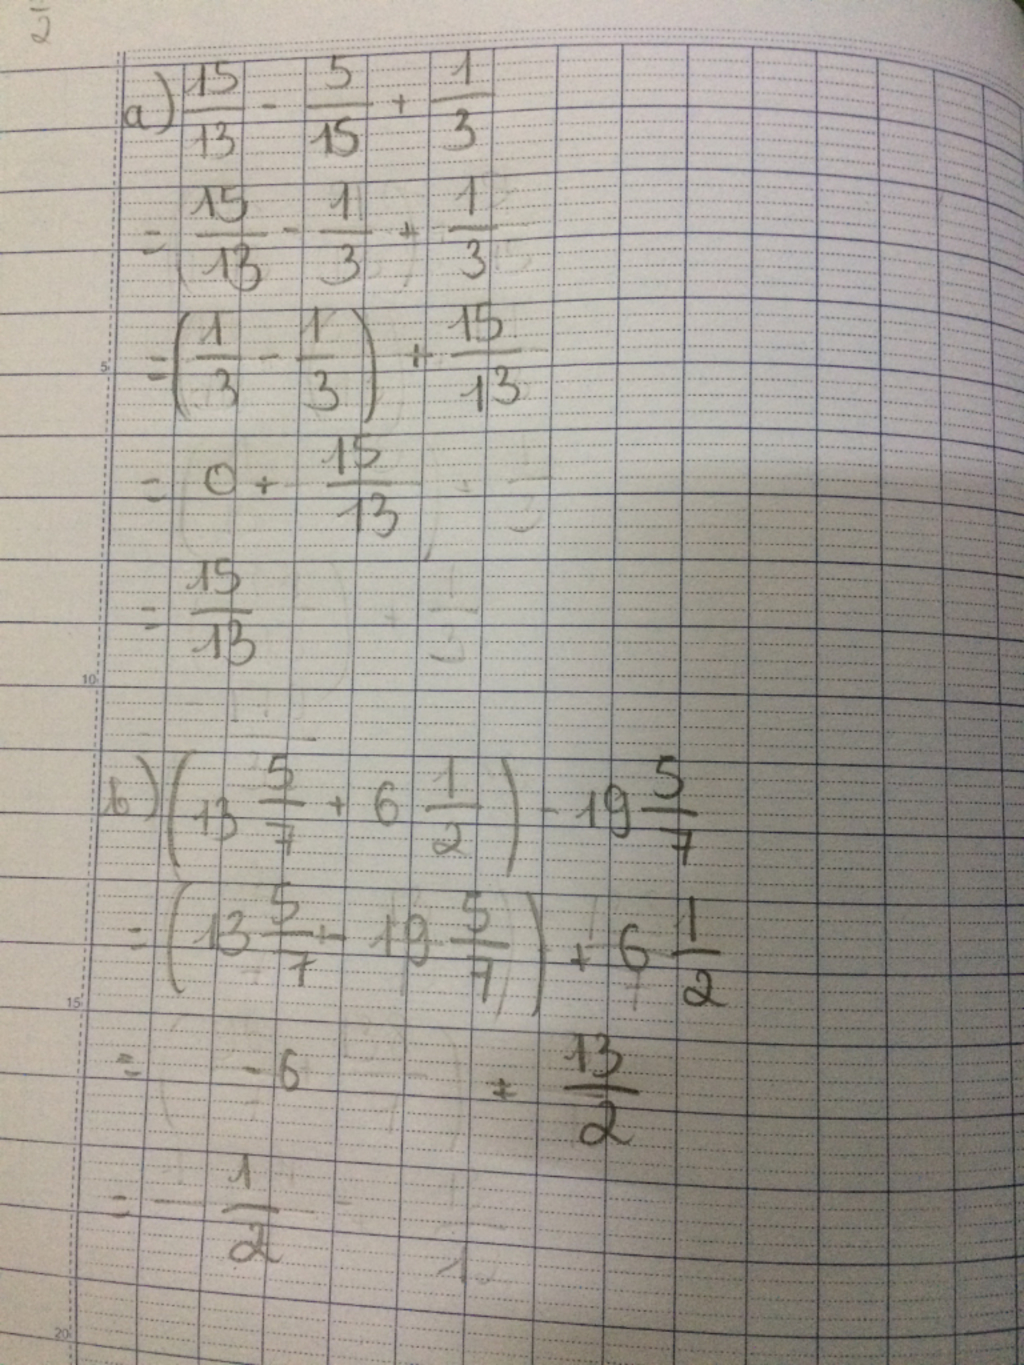 a) 15/13 - 5/15 + 1/3
= 15/13 - 1/3 + 1/3
= (1/3 - 1/3) + 15/13
= 0 + 15/13
= 15/13
b) (13 5/7 + 6 1/2) - 19 5/7
= (13 5/7 - 19 5/7) + 6 1/2
= -6 + 13/2
= - 1/2
5
10
15
20